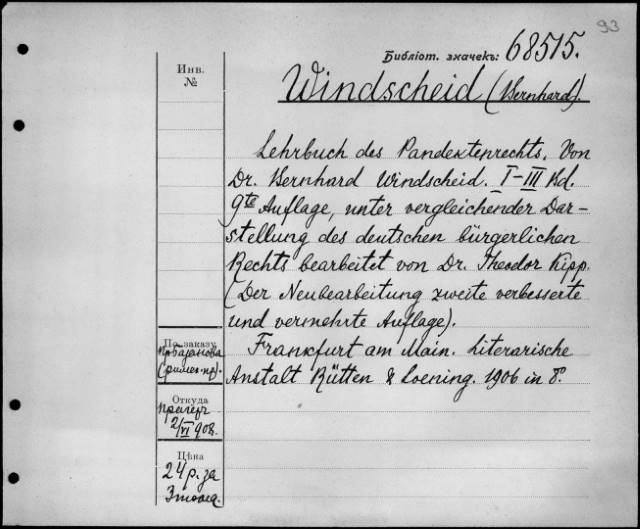 93
Библіот. значекъ: 68515.
Инв.
№
Windscheid (Bernhard).
Lehrbuch des Pandektenrechts. Von
Dr. Bernhard Windscheid. I–III Bd.
9te Auflage, unter vergleichender Dar-
stellung des deutschen bürgerlichen
Rechts bearbeitet von Dr. Theodor Kipp.
(Der Neubearbeitung zweite verbesserte
und vermehrte Auflage).
Frankfurt am Main. Literarische
Anstalt Rütten & Loening. 1906 in 8°.
По заказу
Откуда
2/VI 908.
Цѣна
24 р. за
3 тома.